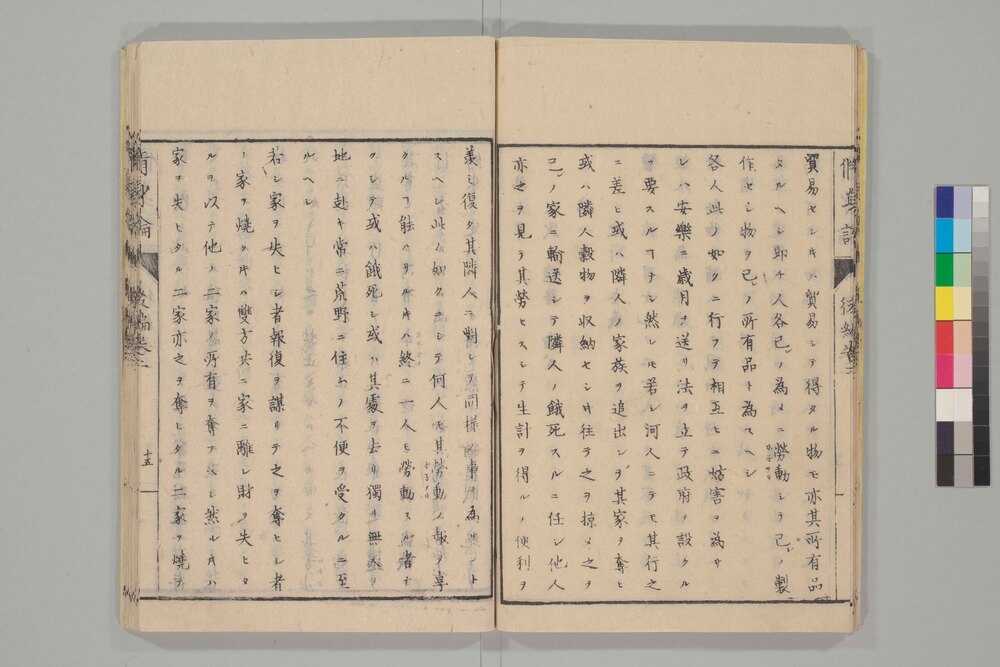 貿易セシキハ貿易シテ得タル物モ亦其所有品
タルヘシ即チ人各己ノ為メニ勞動シテ己ノ製
作セシ物ヲ己ノ所有品ト為スヘシ
各人此ノ如クニ行フテ相互ヒニ妨害ヲ為サ
レハ安樂ニ歳月ヲ送リ法ヲ立テ政府ヲ設クル
ヲ要スルヿナシ然レモ若シ何人ニテモ其行之
ニ差ヒ或ハ隣人ノ家族ヲ追出シテ其家ヲ奪ヒ
或ハ隣人穀物ヲ収納セシ時往テ之ヲ掠メ之ヲ
己ノ家ニ輸送シテ隣人ノ餓死スルニ任シ他人
亦之ヲ見テ其勞セスシテ生計ヲ得ルノ便利ヲ
羨ミ復タ其隣人ニ對シテ同樣ノ事ヲ為サント
スヘシ此ノ如クニシテ何人モ其勞動ノ報ヲ享
クルヿ能ハサルキハ終ニ一人モ勞動スル者ナ
クシテ或ハ餓死シ或ハ其處ヲ去リ獨リ無人ノ
地ニ赴キ常ニ荒野ニ住ムノ不便ヲ受クルニ至
ルヘシ
若シ家ヲ失ヒシ者報復ヲ謀リテ之ヲ奪ヒシ者
ノ家ヲ燒クキハ雙方共ニ家ニ離レ財ヲ失ヒタ
ルヲ以テ他ノ二家ノ所有ヲ奪フヘシ然ルキハ
家ヲ失ヒタル二家亦之ヲ奪ヒタル二家ヲ燒テ
後編巻二
十五